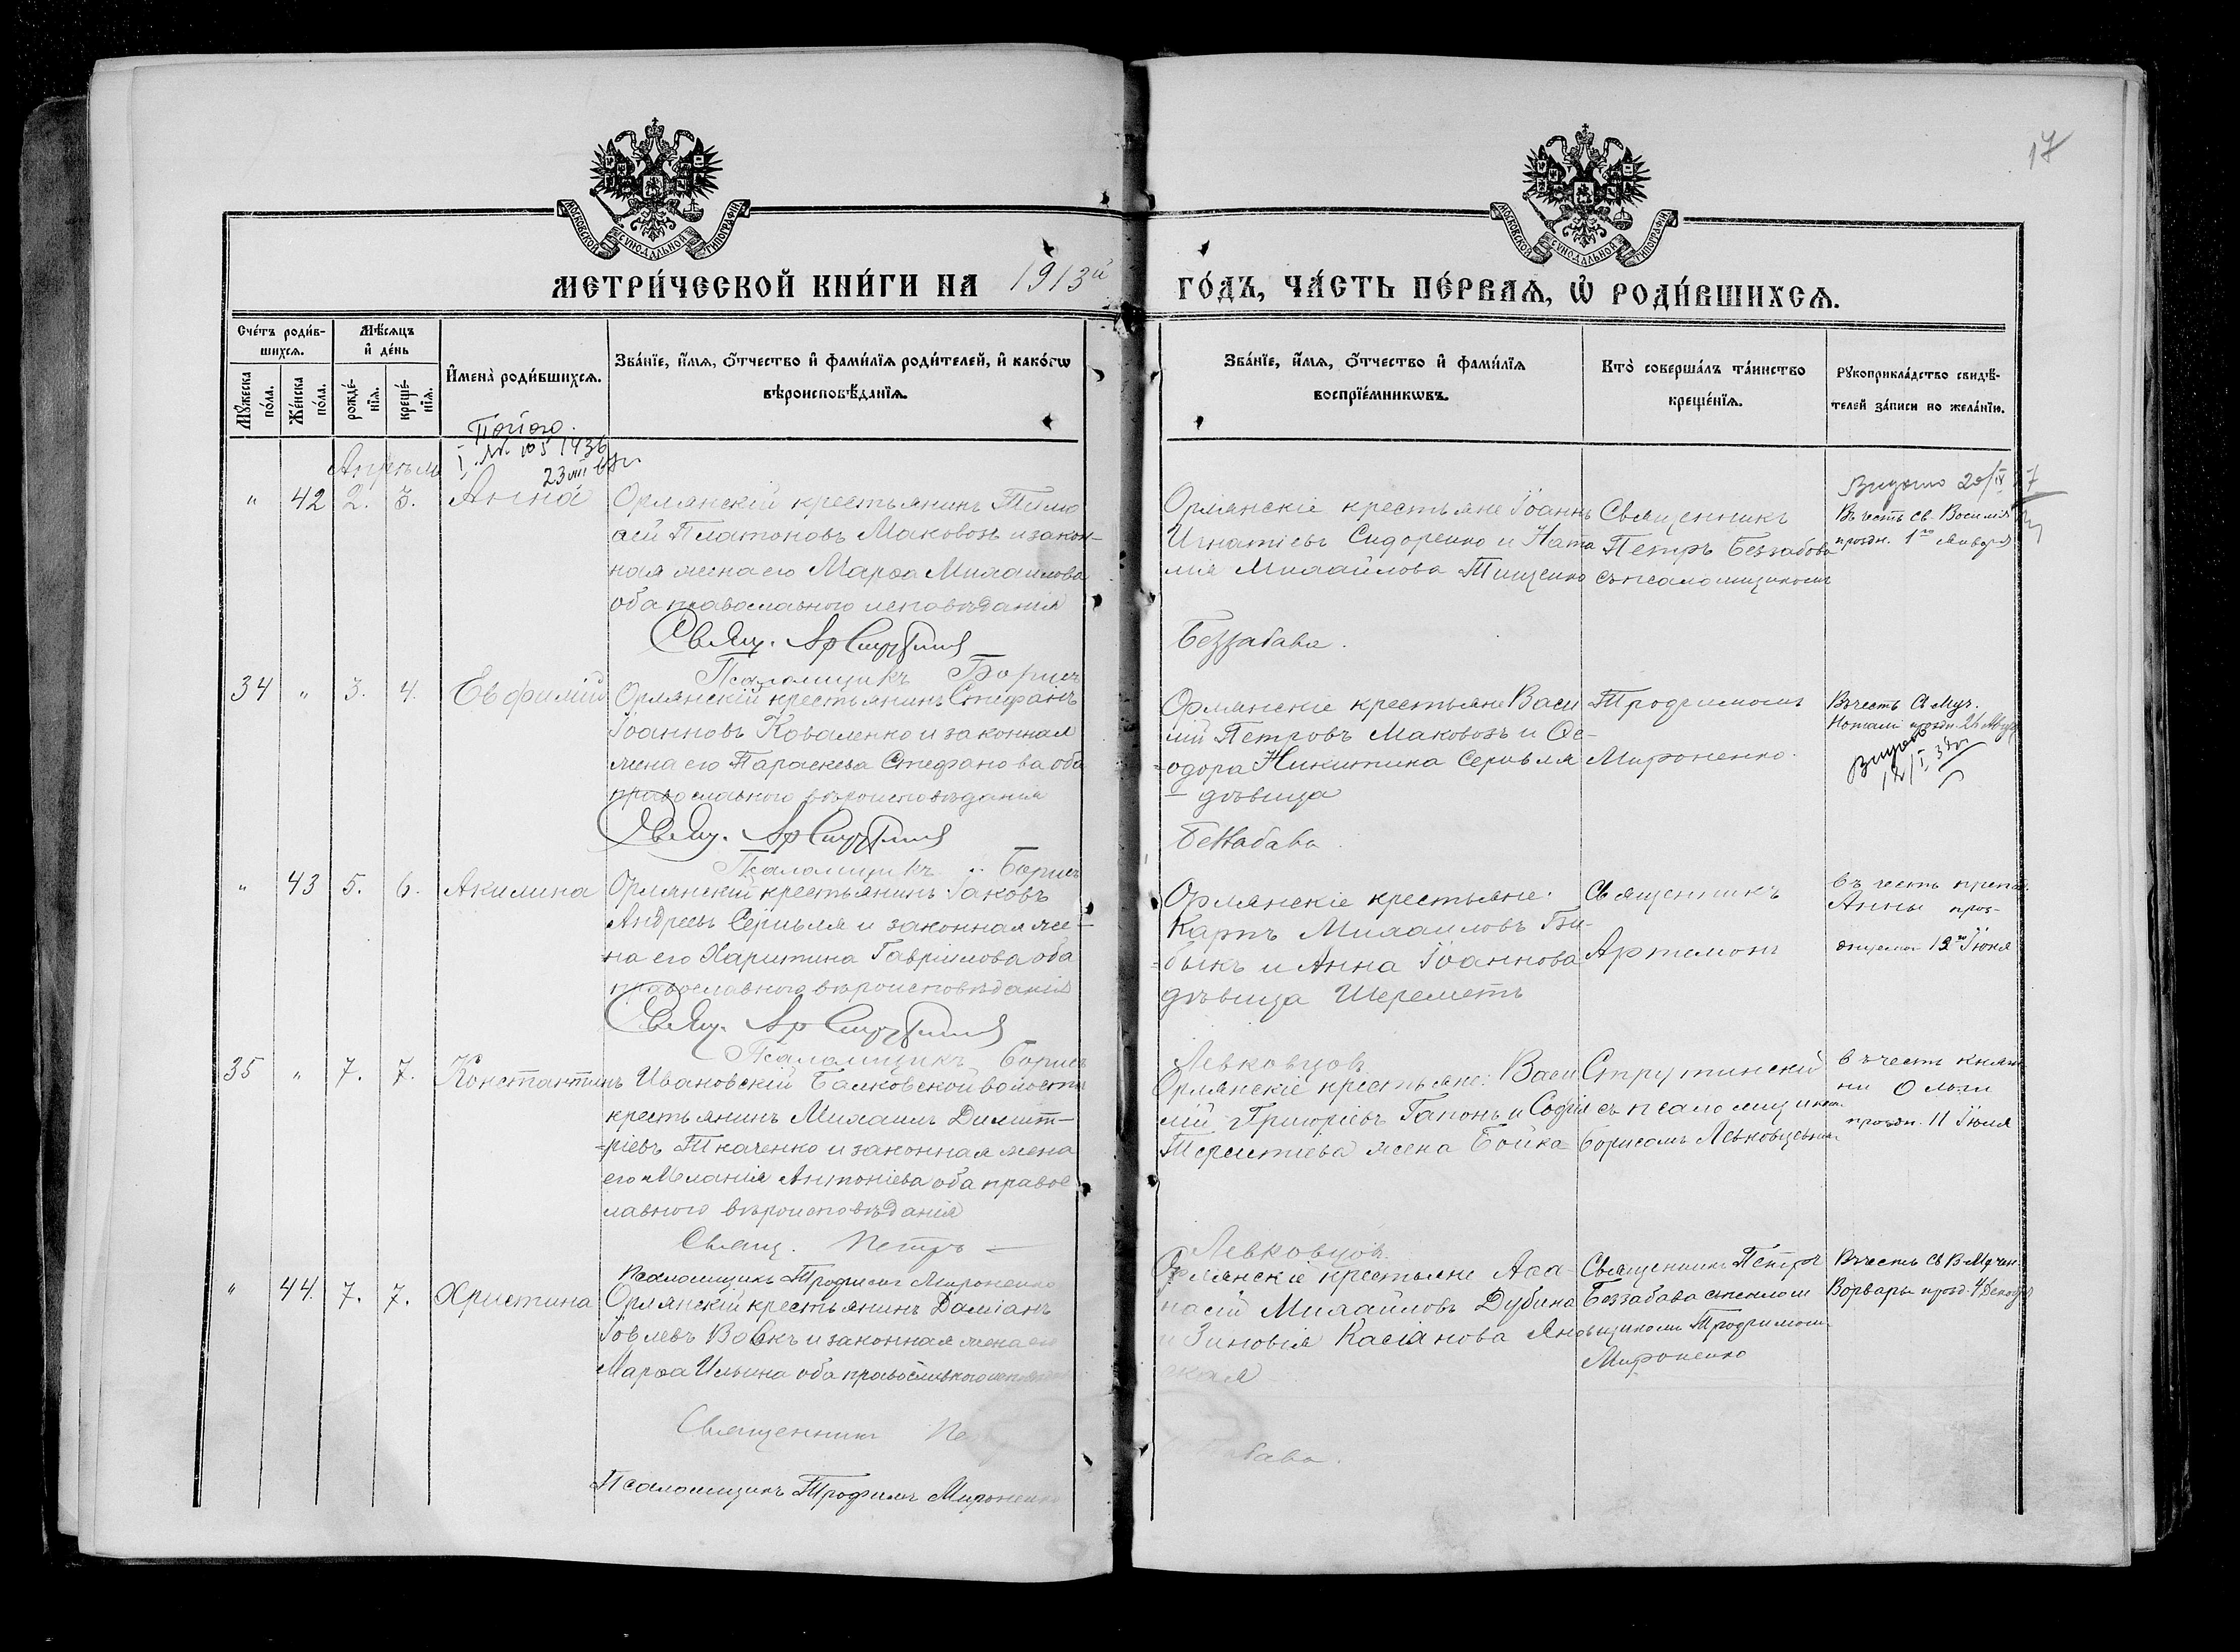 17
МОСКОВСКОЙ СѴНОДАЛЬНОЙ ТИПОГРАФІИ
МОСКОВСКОЙ СѴНОДАЛЬНОЙ ТИПОГРАФІИ
МЕТРИ́ЧЕСКОЙ КНИ́ГИ НА 1913й ГО́ДЪ, ЧА́СТЬ ПЕ́РВАѦ, Ѡ҆ РОДИ́ВШИХСѦ.
Сче́тъ роди́в-
шихсѧ.
Мѣ́сѧцъ
и҆ де́нь
Му́жеска
по́ла.
Же́нска
по́ла.
рожде́-
нїѧ.
креще́-
нїѧ.
И҆мена̀ роди́вшихсѧ.
Зва́нїе, и҆́мѧ, ѻ҆́тчество и҆ фами́лїѧ роди́телей, и҆ како́гѡ
вѣроисповѣ́данїѧ.
Зва́нїе, и҆́мѧ, ѻ҆́тчество и҆ фами́лїѧ
воспрїе́мникѡвъ.
Кто̀ соверша́лъ та́инство
креще́нїѧ.
Рꙋкоприкла́дство свидѣ́-
телей за́писи по жела́нїю.
Апрѣль
№ 105 1936
23
" 42 2. 3. Анна
Орлянскій крестьянинъ Тимо
ѳей Платоновъ Маковозъ и закон-
ная жена его Марѳа Михаилова
оба православного исповѣданія
Свящ. Ар Струтинскій
Псаломщикъ Борисъ
Орлянскіе крестьяне Іоаннъ
Игнатіевъ Сидоренко и Ната
лія Михайлова Тищенко
Беззабава.
Священникъ
Петръ Беззабава
съ псаломщикомъ
20/IV
Въ честь св. Василія
праздн. 1го Января
34 " 3. 4. Евфимій
Орлянскій крестьянинъ Стефанъ
Іоанновъ Коваленко и законная
жена его Параскева Стефанова оба
православного вѣроисповѣданія
Свящ. Ар Струтинскій
Псаломщикъ Борисъ
Орлянскіе крестьяне Васи
лій Петровъ Маковозъ и Ѳе-
=одора Никитина Сергѣля
дѣвица
Беззабава.
Трофимомъ
Мироненко.
Въ честь Св Муч.
12/I
" 43 5. 6. Акилина
Орлянскій крестьянинъ Іаковъ
Андреевъ Сергѣля и законная же-
на его Харитина Гавріилова оба
православного вѣроисповѣданія
Свящ. Ар Струтинскій
Псаломщикъ Борисъ
Орлянскіе крестьяне.
Карпъ Михаиловъ Би-
=быкъ и Анна Іоаннова
дѣвица Шереметъ
Левковцов
Священникъ
Артемонъ
въ честь препод.
Анны праз-
днуемой 12го Іюня
35 " 7. 7. Константинъ
Ивановскій Балковской волости
крестьянинъ Михаилъ Димит-
=ріевъ Ткаченко и законная жена
его Меланія Антоніева оба правос
лавного вѣроисповѣданія
Свящ. Петръ
Псаломщикъ Трофимъ Мироненко
Орлянскіе крестьяне: Васи
лій Григорієвъ Гапонъ и Софія
Терентіева жена Бойка
Левковцов.
Струтинскій
съ псаломщикомъ
Борисомъ Левковцевымъ
въ честь княги
ни Ольги
праздн. 11 Іюля
" 44. 7. 7. Христина
Орлянскій крестьянинъ Даміанъ
Іовлевъ Вовкъ и законная жена его
Марѳа Ильина оба православного
Священникъ Пе
Псаломщикъ Трофимъ Мироненко
Орлянскіе крестьяне Аѳа-
насій Михайловъ Дубина
и Зиновія Касіянова Янов
ская
бава.
Священникъ Петръ
Беззабава съ псаломщикомъ Трофимомъ
Мироненко
Въ честь Св В-Мучен
Варвары празд. 4 Декабря